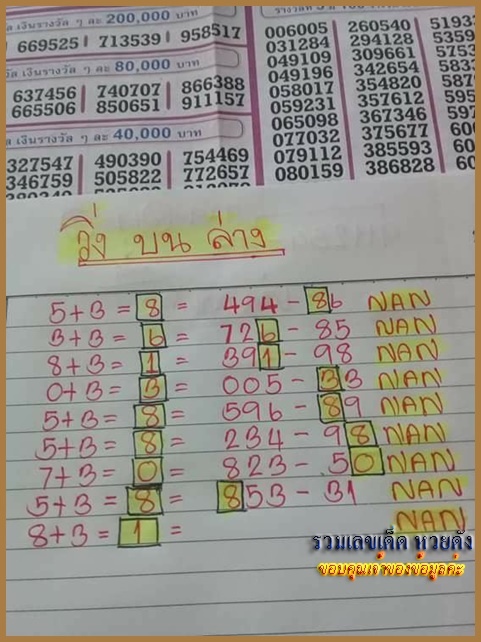 ล เงินรางวัล ๆ ละ 200,000 บาท
669525 713539 958517
เงินรางวัล ๆ ละ 80,000 บาท
637456 740707 866388
665506 850651 911157
เงินรางวัล ๆ ละ 40,000 บาท
327547 490390 754469
346759 505822 772657
006005 260540
031284 294128
049109 309661
049196 342654
058017 354820
059231 357612
065098 367346
077032 375677
079112 385593
080159 386828
วิ่ง บน ล่าง
5+3 = 8 = 494 - 86 NAN
3+3 = 6 = 726 - 85 NAN
8+3 = 1 = 391 - 98 NAN
0+3 = 3 = 005 - 33 NAN
5+3 = 8 = 596 - 89 NAN
5+3 = 8 = 234 - 98 NAN
7+3 = 0 = 823 - 50 NAN
5+3 = 8 = 853 - 31 NAN
8+3 = 1 = NAN
รวมเลขเด็ด หวยดัง
ขอบคุณเจ้าของข้อมูลค่ะ